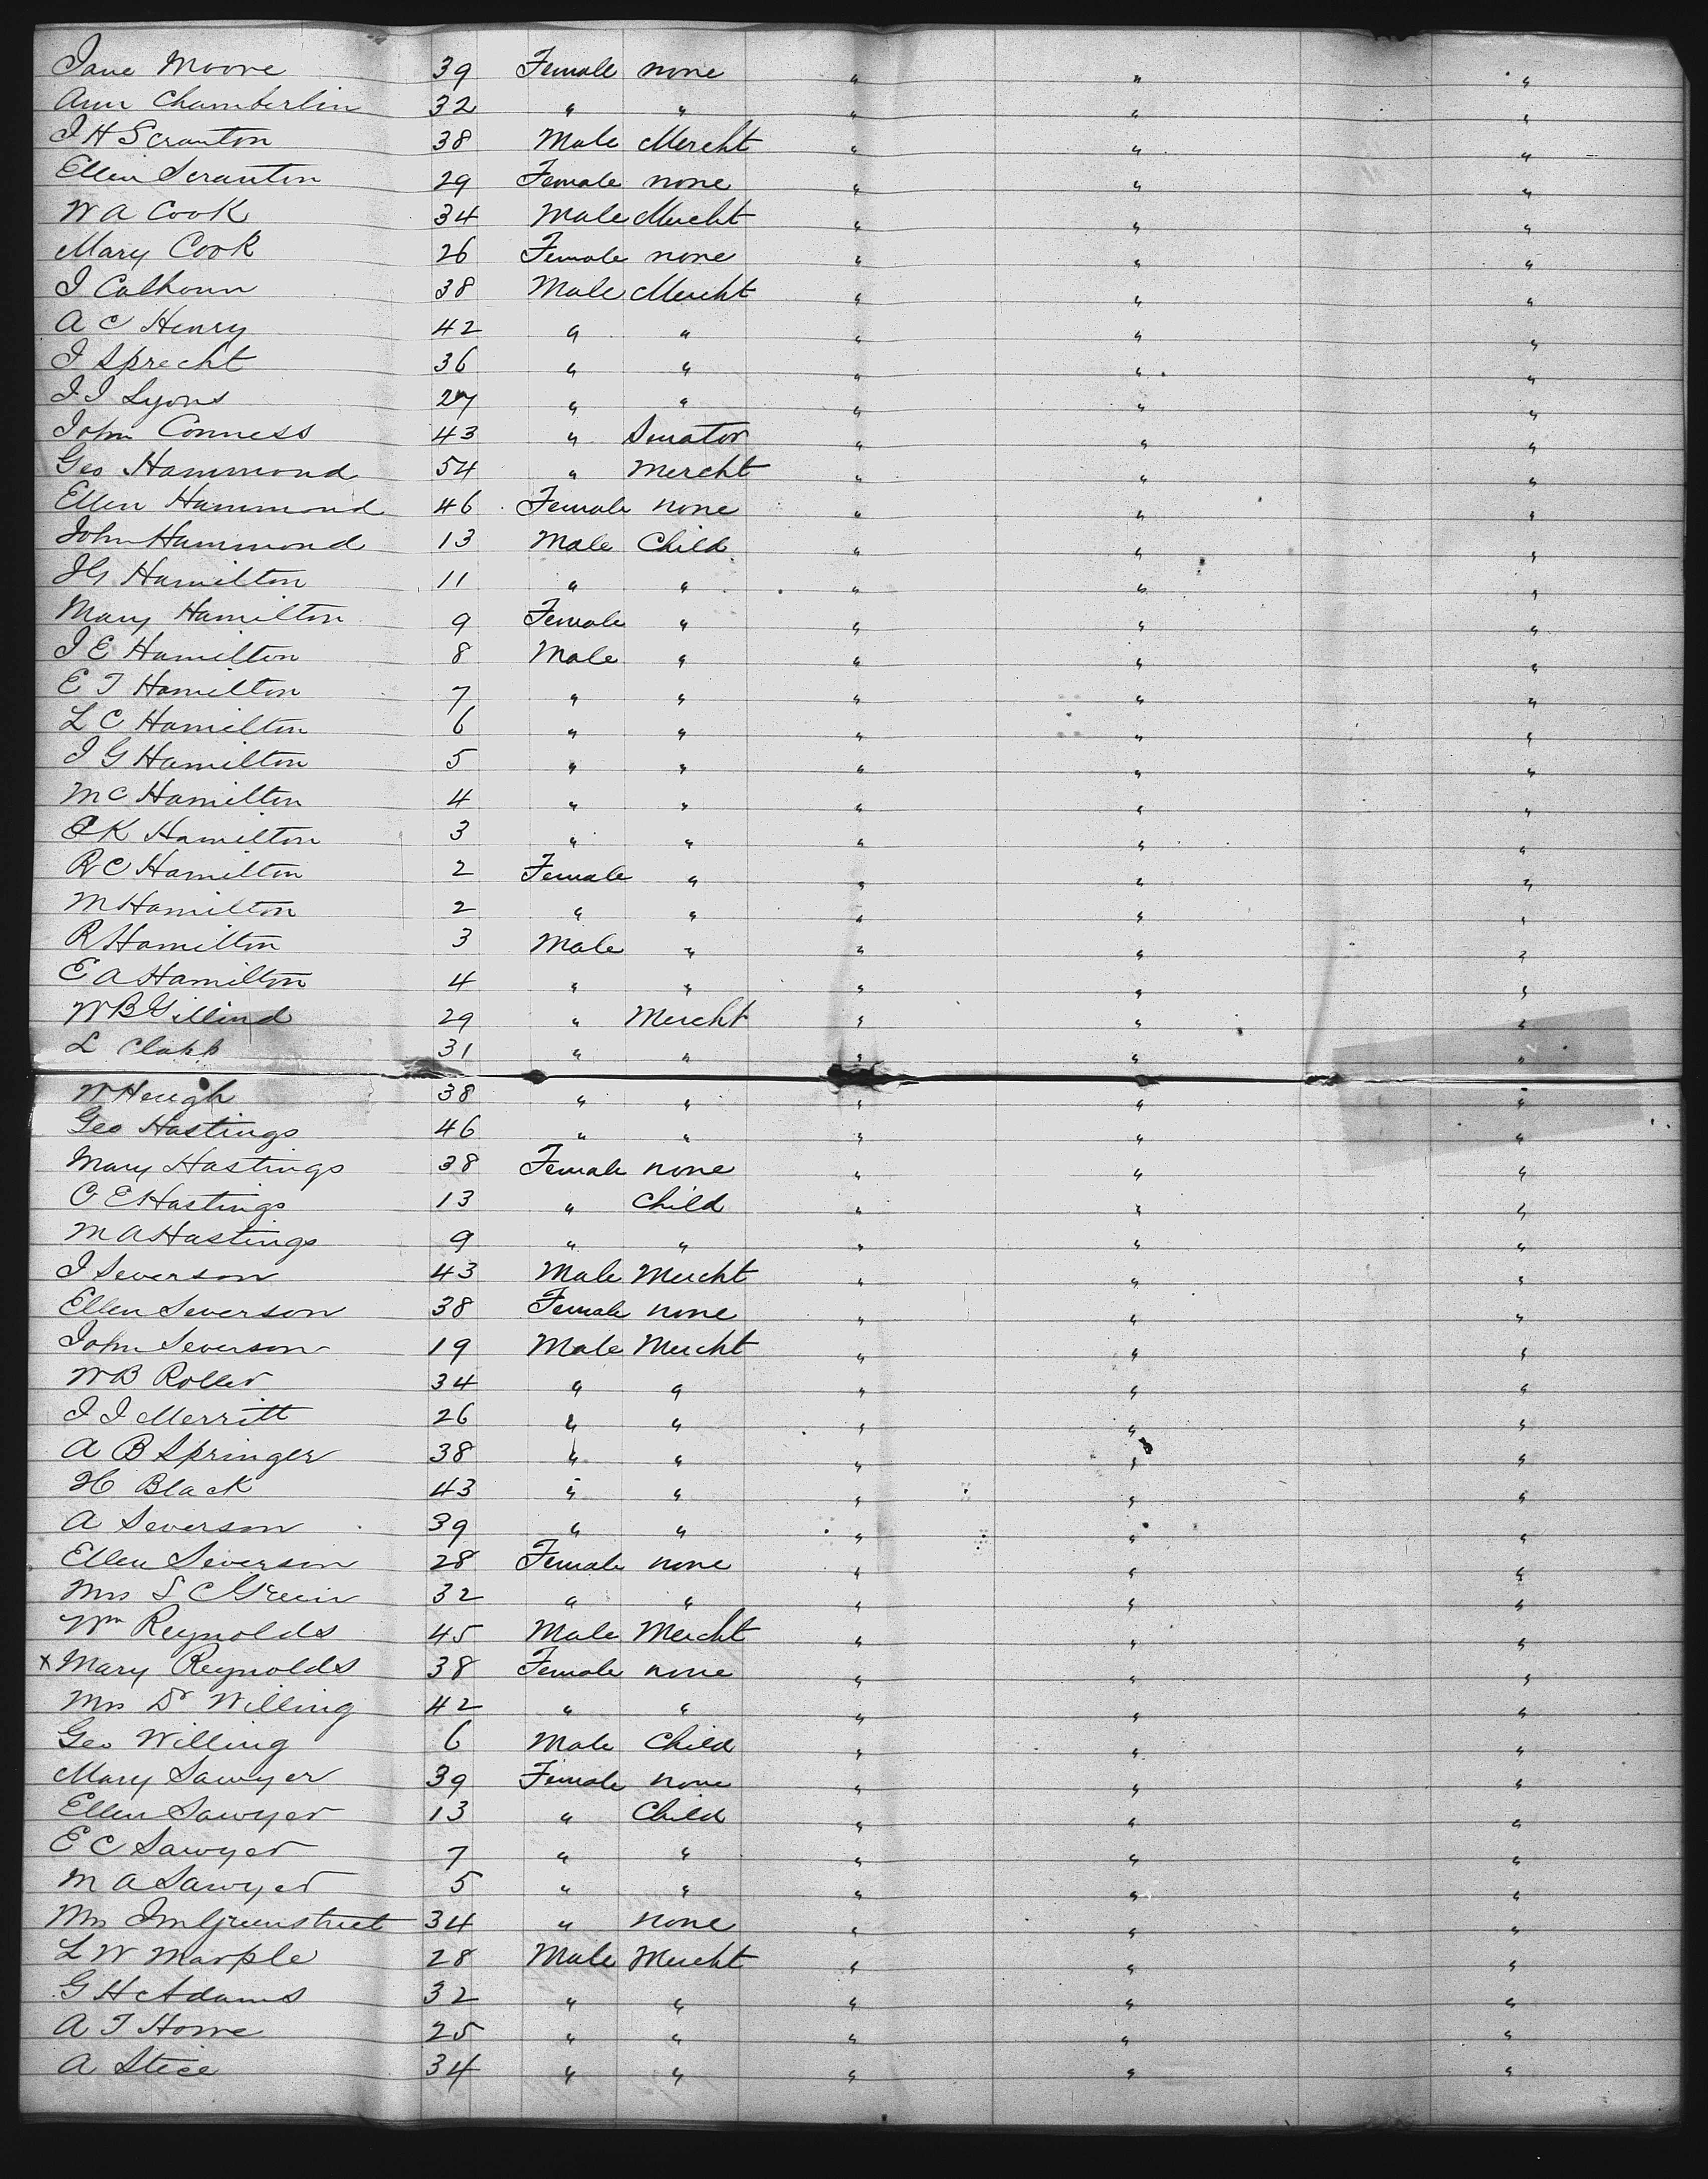 Jane Moore 39 Female none " " "
Ann Chamberlin 32 " " " " "
J H Scranton 38 Male Mercht " " "
Ellen Scranton 29 Female none " " "
W A Cook 34 Male Mercht " " "
Mary Cook 26 Female none " " "
J Calhoun 38 Male Mercht " " "
A C Henry 42 " " " " "
J Sprecht 36 " " " " "
J J Lyons 27 " " " " "
John Conness 43 " Senator " " "
Geo Hammond 54 " Mercht " " "
Ellen Hammond 46 Female none " " "
John Hammond 13 Male Child " " "
J G Hamilton 11 " " " " "
Mary Hamilton 9 Female " " " "
J E Hamilton 8 Male " " " "
E T Hamilton 7 " " " " "
L C Hamilton 6 " " " " "
J G Hamilton 5 " " " " "
M C Hamilton 4 " " " " "
K Hamilton 3 " " " " "
R C Hamilton 2 Female " " " "
M Hamilton 2 " " " " "
R Hamilton 3 Male " " " "
E A Hamilton 4 " " " " "
W B Gillind 29 " Mercht " " "
L Clapp 31 " " " " "
W Hough 38 " " " " "
Geo Hastings 46 " " " " "
Mary Hastings 38 Female none " " "
C E Hastings 13 " Child " " "
M A Hastings 9 " " " " "
J Severson 43 Male Mercht " " "
Ellen Severson 38 Female none " " "
John Severson 19 Male Mercht " " "
W B Roller 34 " " " " "
J J Merritt 26 " " " " "
A B Springer 38 " " " " "
H Black 43 " " " " "
A Severson 39 " " " " "
Ellen Severson 28 Female none " " "
Mrs S C Green 32 " " " " "
Wm Reynolds 45 Male Mercht " " "
x Mary Reynolds 38 Female none " " "
Mrs Dr Willing 42 " " " " "
Geo Willing 6 Male Child " " "
Mary Sawyer 39 Female none " " "
Ellen Sawyer 13 " Child " " "
E C Sawyer 7 " " " " "
M A Sawyer 5 " " " " "
Mrs Jm Greenstreet 34 " none " " "
L W Marple 28 Male Mercht " " "
G H Adams 32 " " " " "
A T Horne 25 " " " " "
A Stice 34 " " " " "